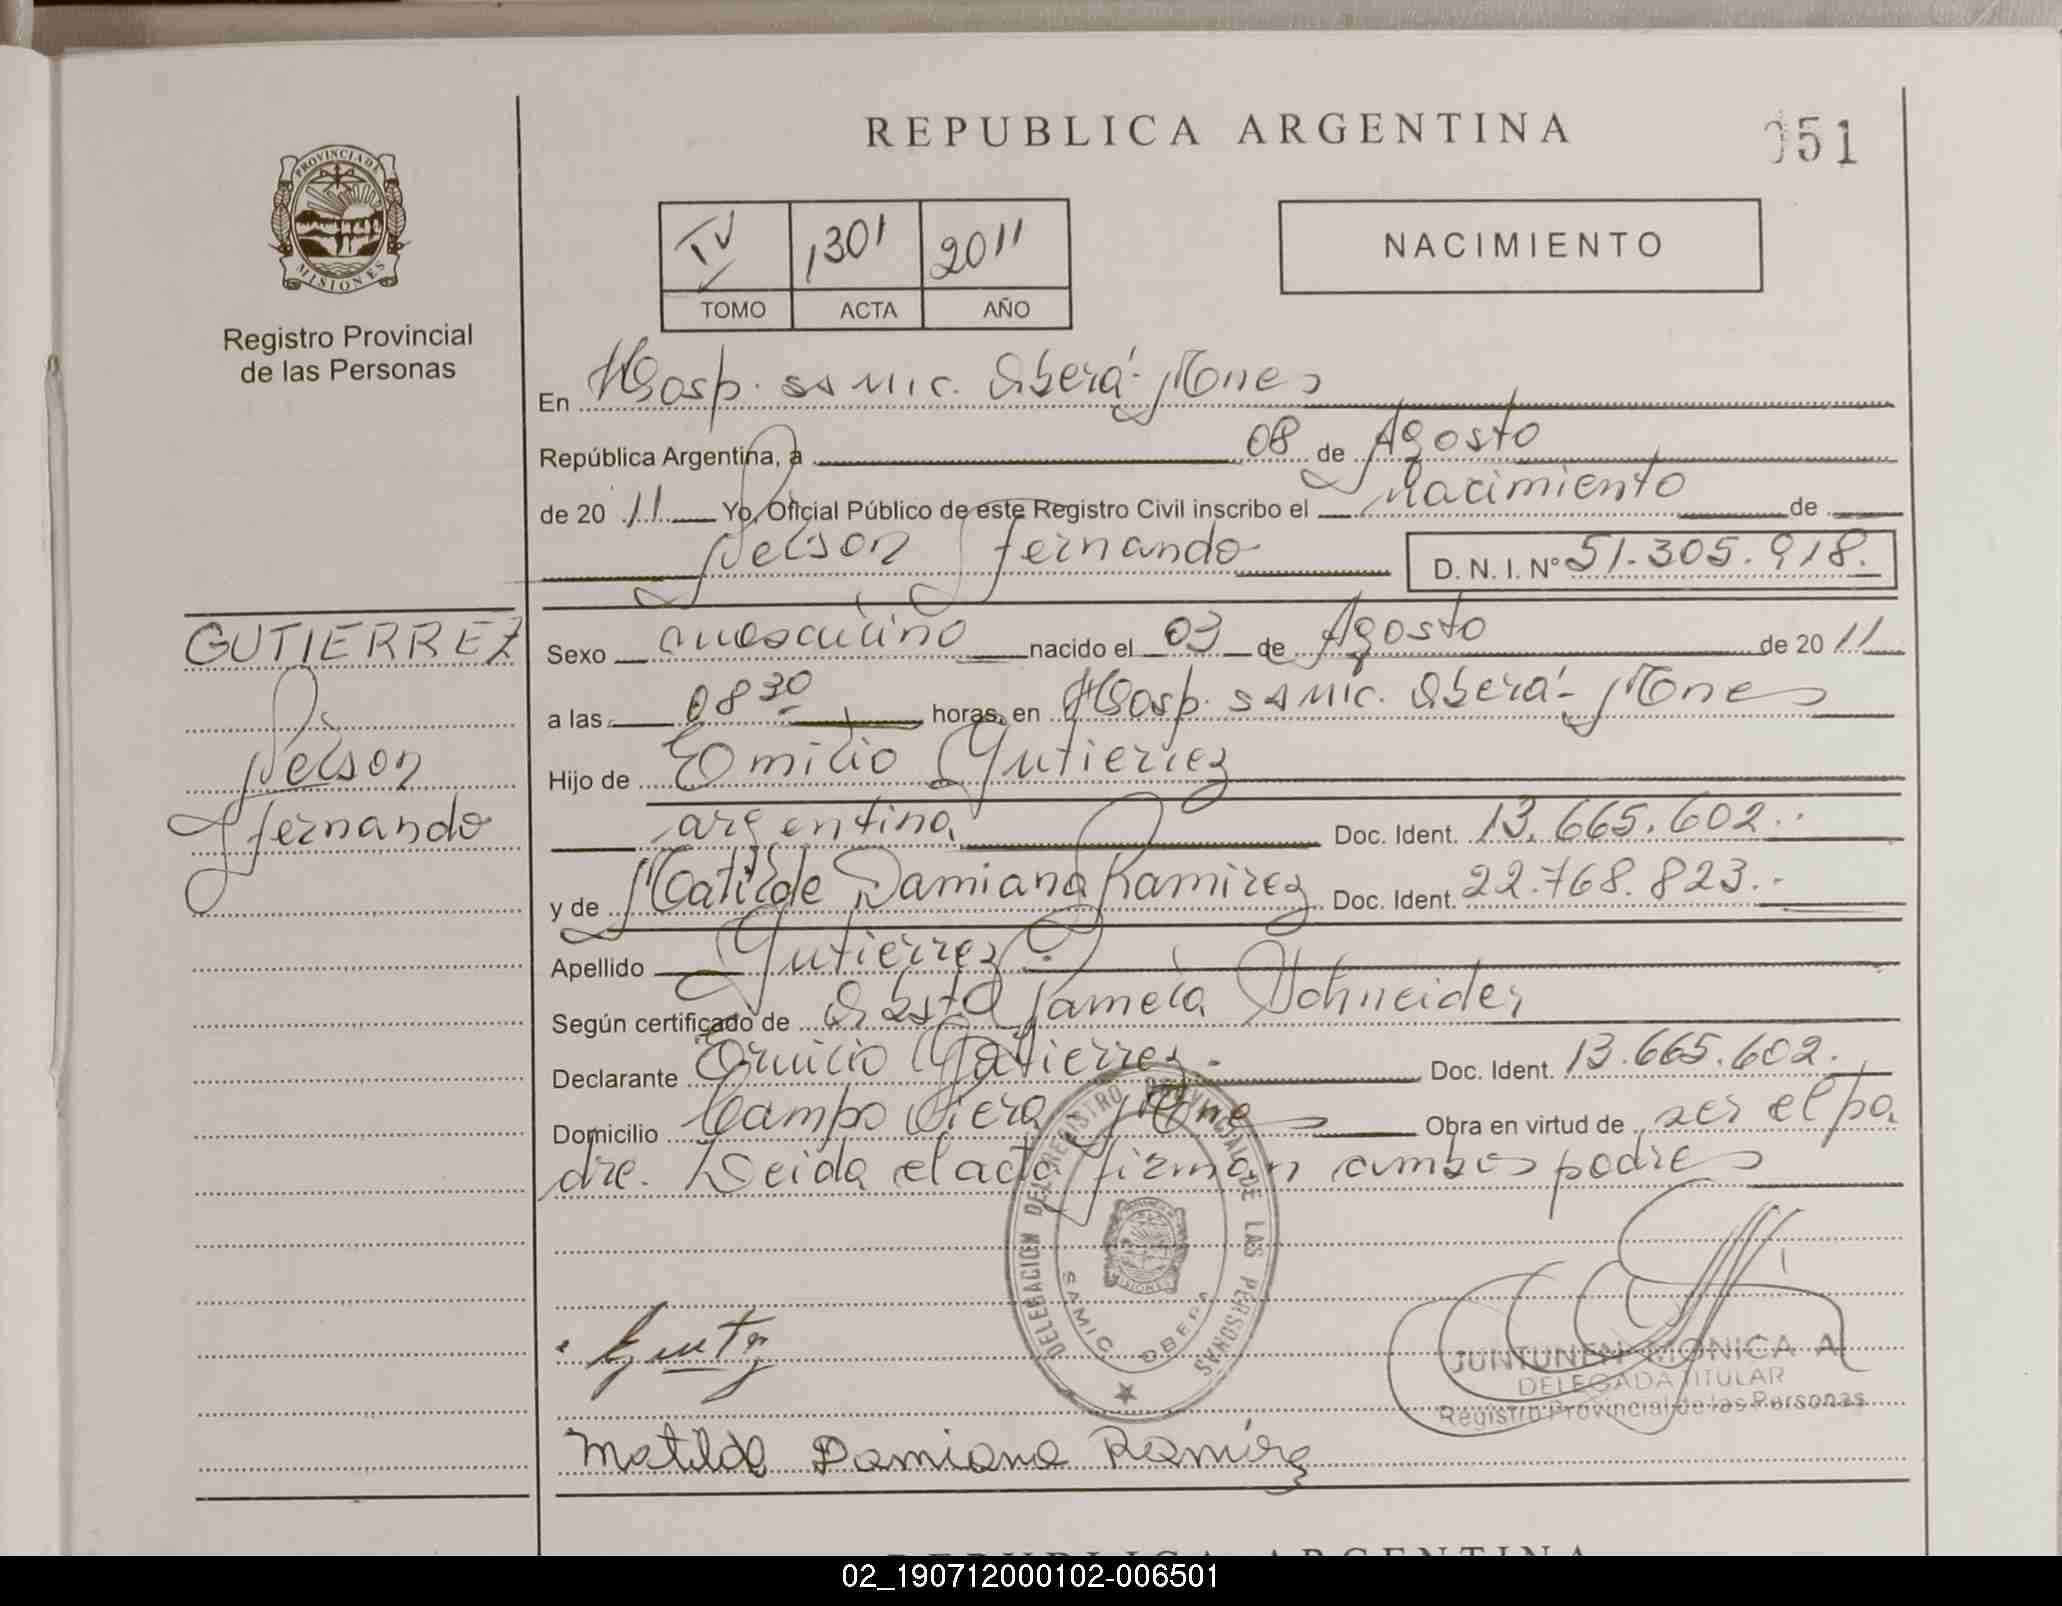 REPUBLICA ARGENTINA
051
PROVINCIA DE MISIONES
Registro Provincial
de las Personas
IV 1301 2011
TOMO ACTA AÑO
NACIMIENTO
En Hosp. SAMIC. Oberá - Mnes
República Argentina, a 08 de Agosto
de 20 11 Yo, Oficial Público de este Registro Civil inscribo el nacimiento de
Nelson Fernando D. N. I. Nº 51.305.918.
GUTIERREZ
Nelson
Fernando
Sexo masculino nacido el 03 de Agosto de 20 11
a las 08 30 horas, en Hosp. SAMIC. Oberá - Mnes
Hijo de Emilio Gutierrez
argentino Doc. Ident. 13.665.602..
y de Matilde Damiana Ramirez Doc. Ident. 22.768.823..
Apellido Gutierrez
Según certificado de Obsta Pamela Schneider
Declarante Emilio Gutierrez.- Doc. Ident. 13.665.602.
Domicilio Campo Viera Mnes Obra en virtud de ser el pa
dre. Leida el acta firman ambos padres
DELEGACION DEL REGISTRO PROVINCIAL DE LAS PERSONAS
SAMIC OBERA
JUNTUNEN MONICA A
DELEGADA TITULAR
Registro Provincial de las Personas
Matilde Damiana Ramirez
REPUBLICA ARGENTINA
02_190712000102-006501